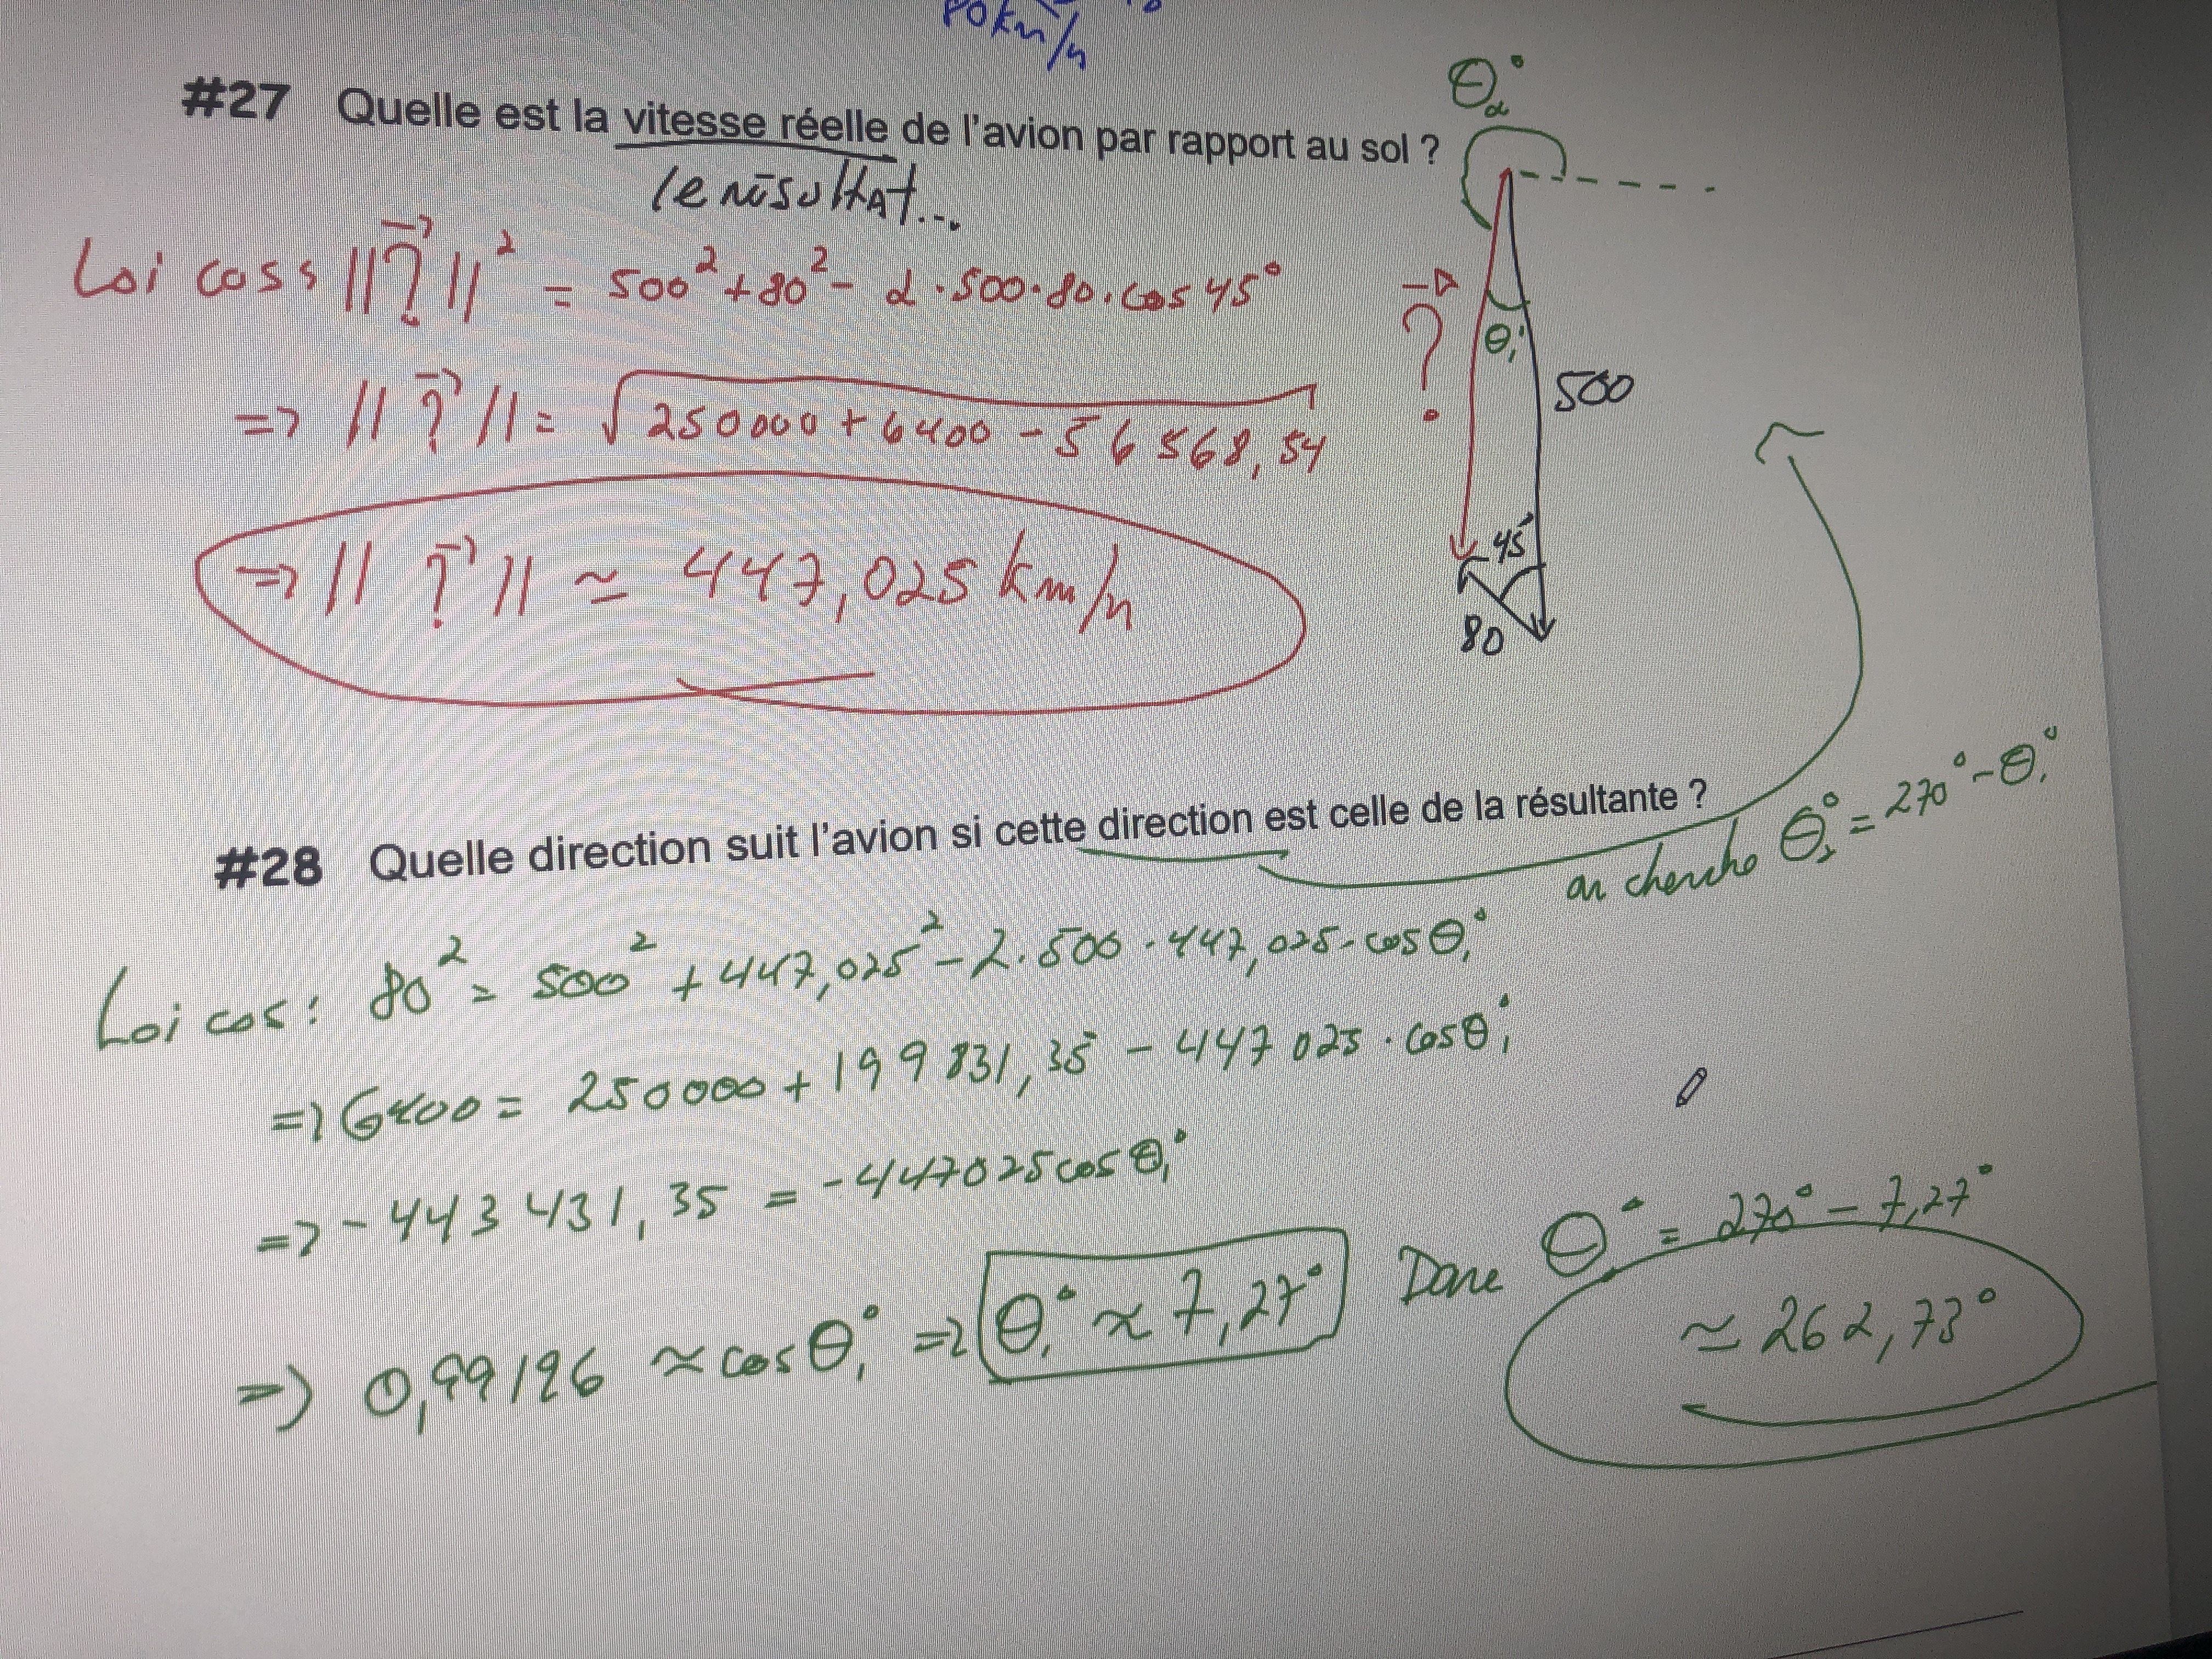 80km/h
#27 Quelle est la vitesse réelle de l'avion par rapport au sol ?
le résultat...
θ₂°
Loi cos : ||?⃗||² = 500² + 80² - 2·500·80·cos 45°
=> ||?⃗|| = √250000 + 6400 - 56568,54
=> ||?⃗|| ≈ 447,025 km/h
?⃗
θ₁
500
45°
80
#28 Quelle direction suit l'avion si cette direction est celle de la résultante ?
on cherche θ₂° = 270° - θ₁°
Loi cos : 80² = 500² + 447,025² - 2·500·447,025·cos θ₁°
=> 6400 = 250000 + 199831,35 - 447025·cos θ₁°
=> -443431,35 = -447025 cos θ₁°
=> 0,99196 ≈ cos θ₁° => θ₁° ≈ 7,27°
Donc θ° = 270° - 7,27°
≈ 262,73°